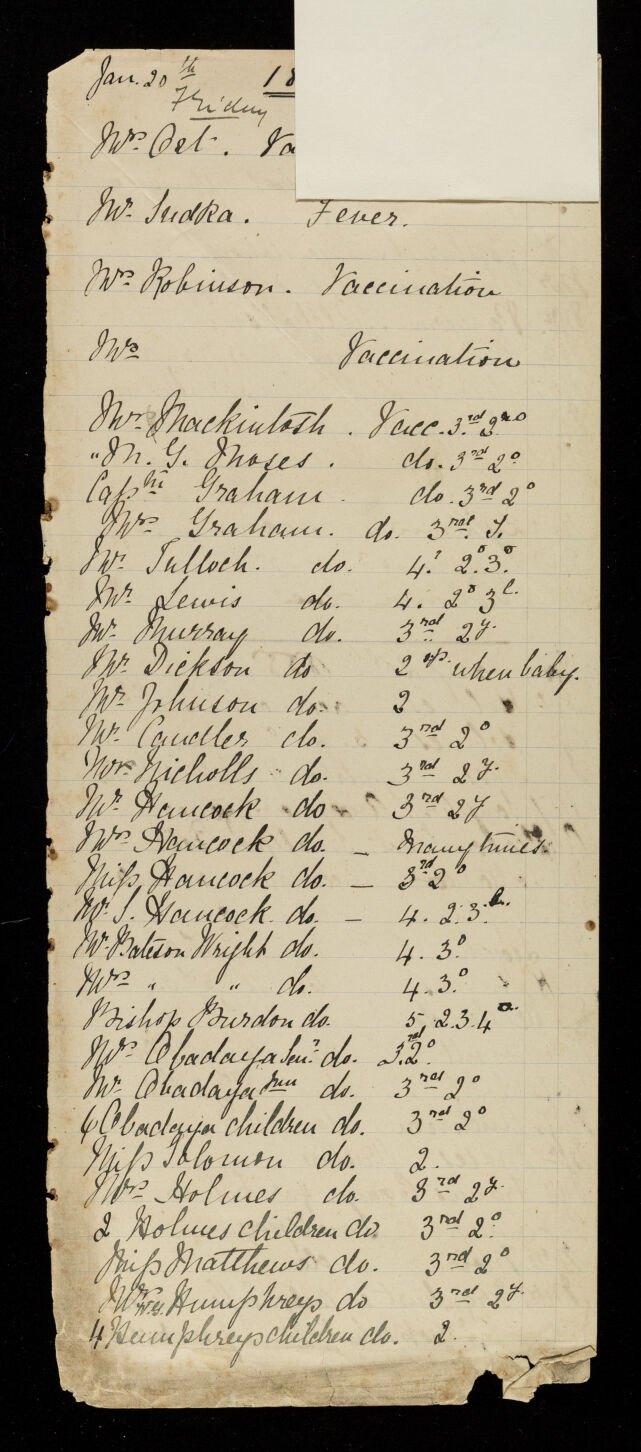 Jan. 20th 18
Friday
Mrs Oet. Va
Mr. Sudka. Fever.
Mrs Robinson. Vaccination
Mrs Vaccination
Mr. Mackintosh. Vacc. 3rd 2no
" M. G. Moses. do. 3rd 2o
Captn Graham. do. 3rd 2o
Mrs Graham. do. 3rd.
Mr. Tulloch. do. 4. 2o 3o.
Mr. Lewis do. 4. 2o 3
Mr. Murray do. 3rd 2y.
Mr. Dickson do 2 when baby.
Mr. Johnson do. 2
Mr. Candler do. 3rd 2o
Mr. Nicholls do. 3rd 2y.
Mr. Hancock do 3rd 2y
Mrs Hancock do. – Many times.
Miss Hancock do. – 3rd 2o
Mr. S. Hancock. do. – 4. 2. 3.
Mr. Bateson Wright do. 4. 3o
Mrs " " do. 4. 3o
Bishop Burdon do. 5, 2. 3. 4
Mrs Obadaya Senr. do. 3rd. 2o
Mr. Obadaya Jun do. 3rd 2o
6 Obadaya children do. 3rd 2o
Miss Solomon do. 2.
Mrs Holmes do. 3rd 2y.
2 Holmes children do. 3rd 2o.
Miss Matthews do. 3rd 2o
Humphreys do 3rd 2y.
4 Humphreys children do. 2.